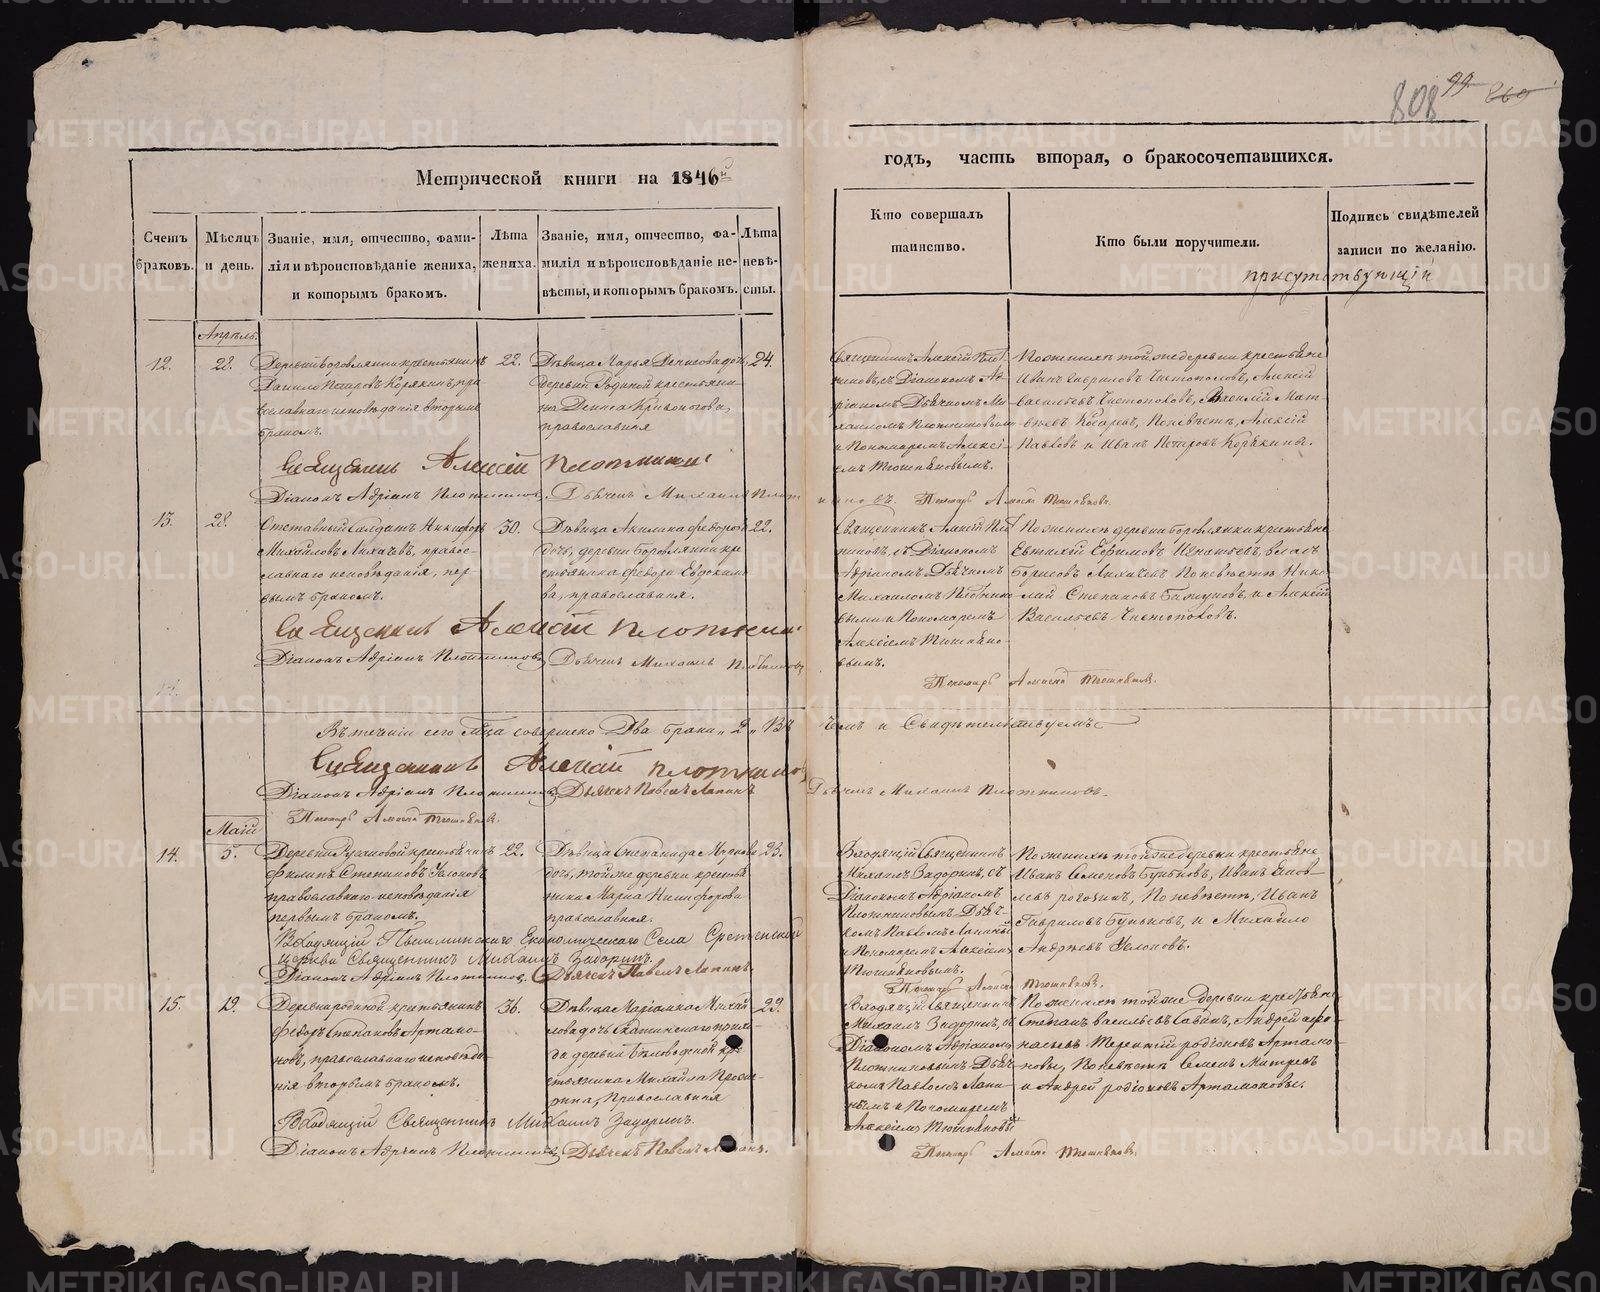 808 99 860
Метрической книги на 1846й
годъ, часть вторая, о бракосочетавшихся.
Счетъ браковъ.
Мѣсяцъ и день.
Званіе, имя, отчество, фами-
лія и вѣроисповѣданіе жениха,
и которымъ бракомъ.
Лѣта
жениха.
Званіе, имя, отчество, фа-
милія и вѣроисповѣданіе не-
вѣсты, и которымъ бракомъ.
Лѣта
невѣ-
сты.
Кто совершалъ
таинство.
Кто были поручители.
Подпись свидѣтелей
записи по желанію.
присутствующій
Апрѣль.
12.
28.
Деревни Боровлянки крестьянинъ
Данило Назаровъ Корякинъ, пра
вославнаго исповѣданія вторымъ
бракомъ.
22.
Дѣвица Марья Денисова дочь,
деревни Родиной крестьяни
на Дениса Кривоногова,
православная
24.
Священникъ Алексій Плот
никовъ, съ Діакономъ Ад
ріаномъ Дьячкомъ Ми
хаиломъ Плотниковыми
и Пономаремъ Алексі
емъ Тюшняковымъ.
По женихѣ той же деревни крестьяне
Иванъ Гавриловъ Чистополовъ, Алексій
Васильевъ Чистополовъ, Василій Мат
вѣевъ Косаревъ, По невѣстѣ, Алексій
Павловъ и Иванъ Назаровъ Корякины.
Священникъ Алексій Плотниковъ
Діаконъ Адріанъ Плотниковъ, Дьячекъ Михаилъ Плотниковъ.
Пономарь Алексѣй Тюшняковъ.
13.
28.
Отставный Солдатъ Никифоръ
Михайловъ Лихачевъ, право-
славнаго исповѣданія, пер
вымъ бракомъ.
30.
Дѣвица Акилина Федорова
дочь, деревни Боровлянки кре
стьянина Федора Евдокимо
ва, православная.
22.
Священникъ Алексій Плот
никовъ, съ Діакономъ
Адріаномъ Дьячкомъ
Михаиломъ Плотнико
выми и Пономаремъ
Алексіемъ Тюшняко-
вымъ.
По женихѣ деревни Боровлянки крестьяне
Евтихій Ефимовъ Игнатьевъ, Власъ
Борисовъ Лихачевъ По невѣстѣ Нико
лай Степановъ и Алексій
Васильевъ Чистополовъ.
Священникъ Алексій Плотниковъ
Діаконъ Адріанъ Плотниковъ, Дьячекъ Михаилъ Плотниковъ
Пономарь Алексѣй Тюшняковъ.
14.
Въ теченіи сего м-ца совершено Два брака „2„ Въ чемъ и Свидѣтельствуемъ
Священникъ Алексій Плотниковъ
Діаконъ Адріанъ Плотниковъ, Дьячекъ Павелъ Лапинъ
Дьячекъ Михаилъ Плотниковъ.
Пономарь Алексѣй Тюшняковъ.
Маій
14.
5.
Деревни Русаковой крестьянинъ
Филипъ Степановъ Услоновъ
православнаго исповѣданія
первымъ бракомъ.
22.
Дѣвица Степанида Маркова
дочь, той же деревни крестья
нина Марка Никифорова
православная.
23.
Входящій Священникъ
Михаилъ Задоринъ, съ
Діакономъ Адріаномъ
Плотниковымъ Дьяч-
комъ Павломъ Лапинымъ
и Пономаремъ Алексіемъ
Тюшняковымъ.
По женихѣ той же деревни крестьяне
Иванъ Семеновъ Буньковъ, Иванъ Яков
левъ Рогозинъ, По невѣстѣ, Иванъ
Гавриловъ Буньковъ, и Михайло
Андреевъ Услоновъ.
Входящій Пышминскаго Економическаго Села Срѣтенской
церкви Священникъ Михаилъ Задоринъ.
Діаконъ Адріанъ Плотниковъ, Дьячекъ Павелъ Лапинъ.
Пономарь Алексѣй Тюшняковъ.
15.
19.
Деревни Родиной крестьянинъ
Федоръ Степановъ Артамо-
новъ, православнаго исповѣда-
нія вторымъ бракомъ.
36.
Дѣвица Маріамна Михай
лова дочь Катинскаго прихо
да деревни Бѣловодской кре
стьянина Михайла
Православная
29.
Входящій Священникъ
Михаилъ Задоринъ, съ
Діакономъ Адріаномъ
Плотниковымъ Дьяч
комъ Павломъ Лапи
нымъ и Пономаремъ
Алексіемъ Тюшняковымъ
По женихѣ той же деревни крестьяне
Степанъ Васильевъ Савинъ, Андрей Афо
насьевъ Терентій Родіоновъ Артамо
новы, По невѣстѣ Семенъ Митревъ
и Андрей Родіоновъ Артамоновы.
Входящій Священникъ Михаилъ Задоринъ.
Діаконъ Адріанъ Плотниковъ, Дьячекъ Павелъ Лапинъ.
Пономарь Алексѣй Тюшняковъ.
METRIKI.GASO-URAL.RU